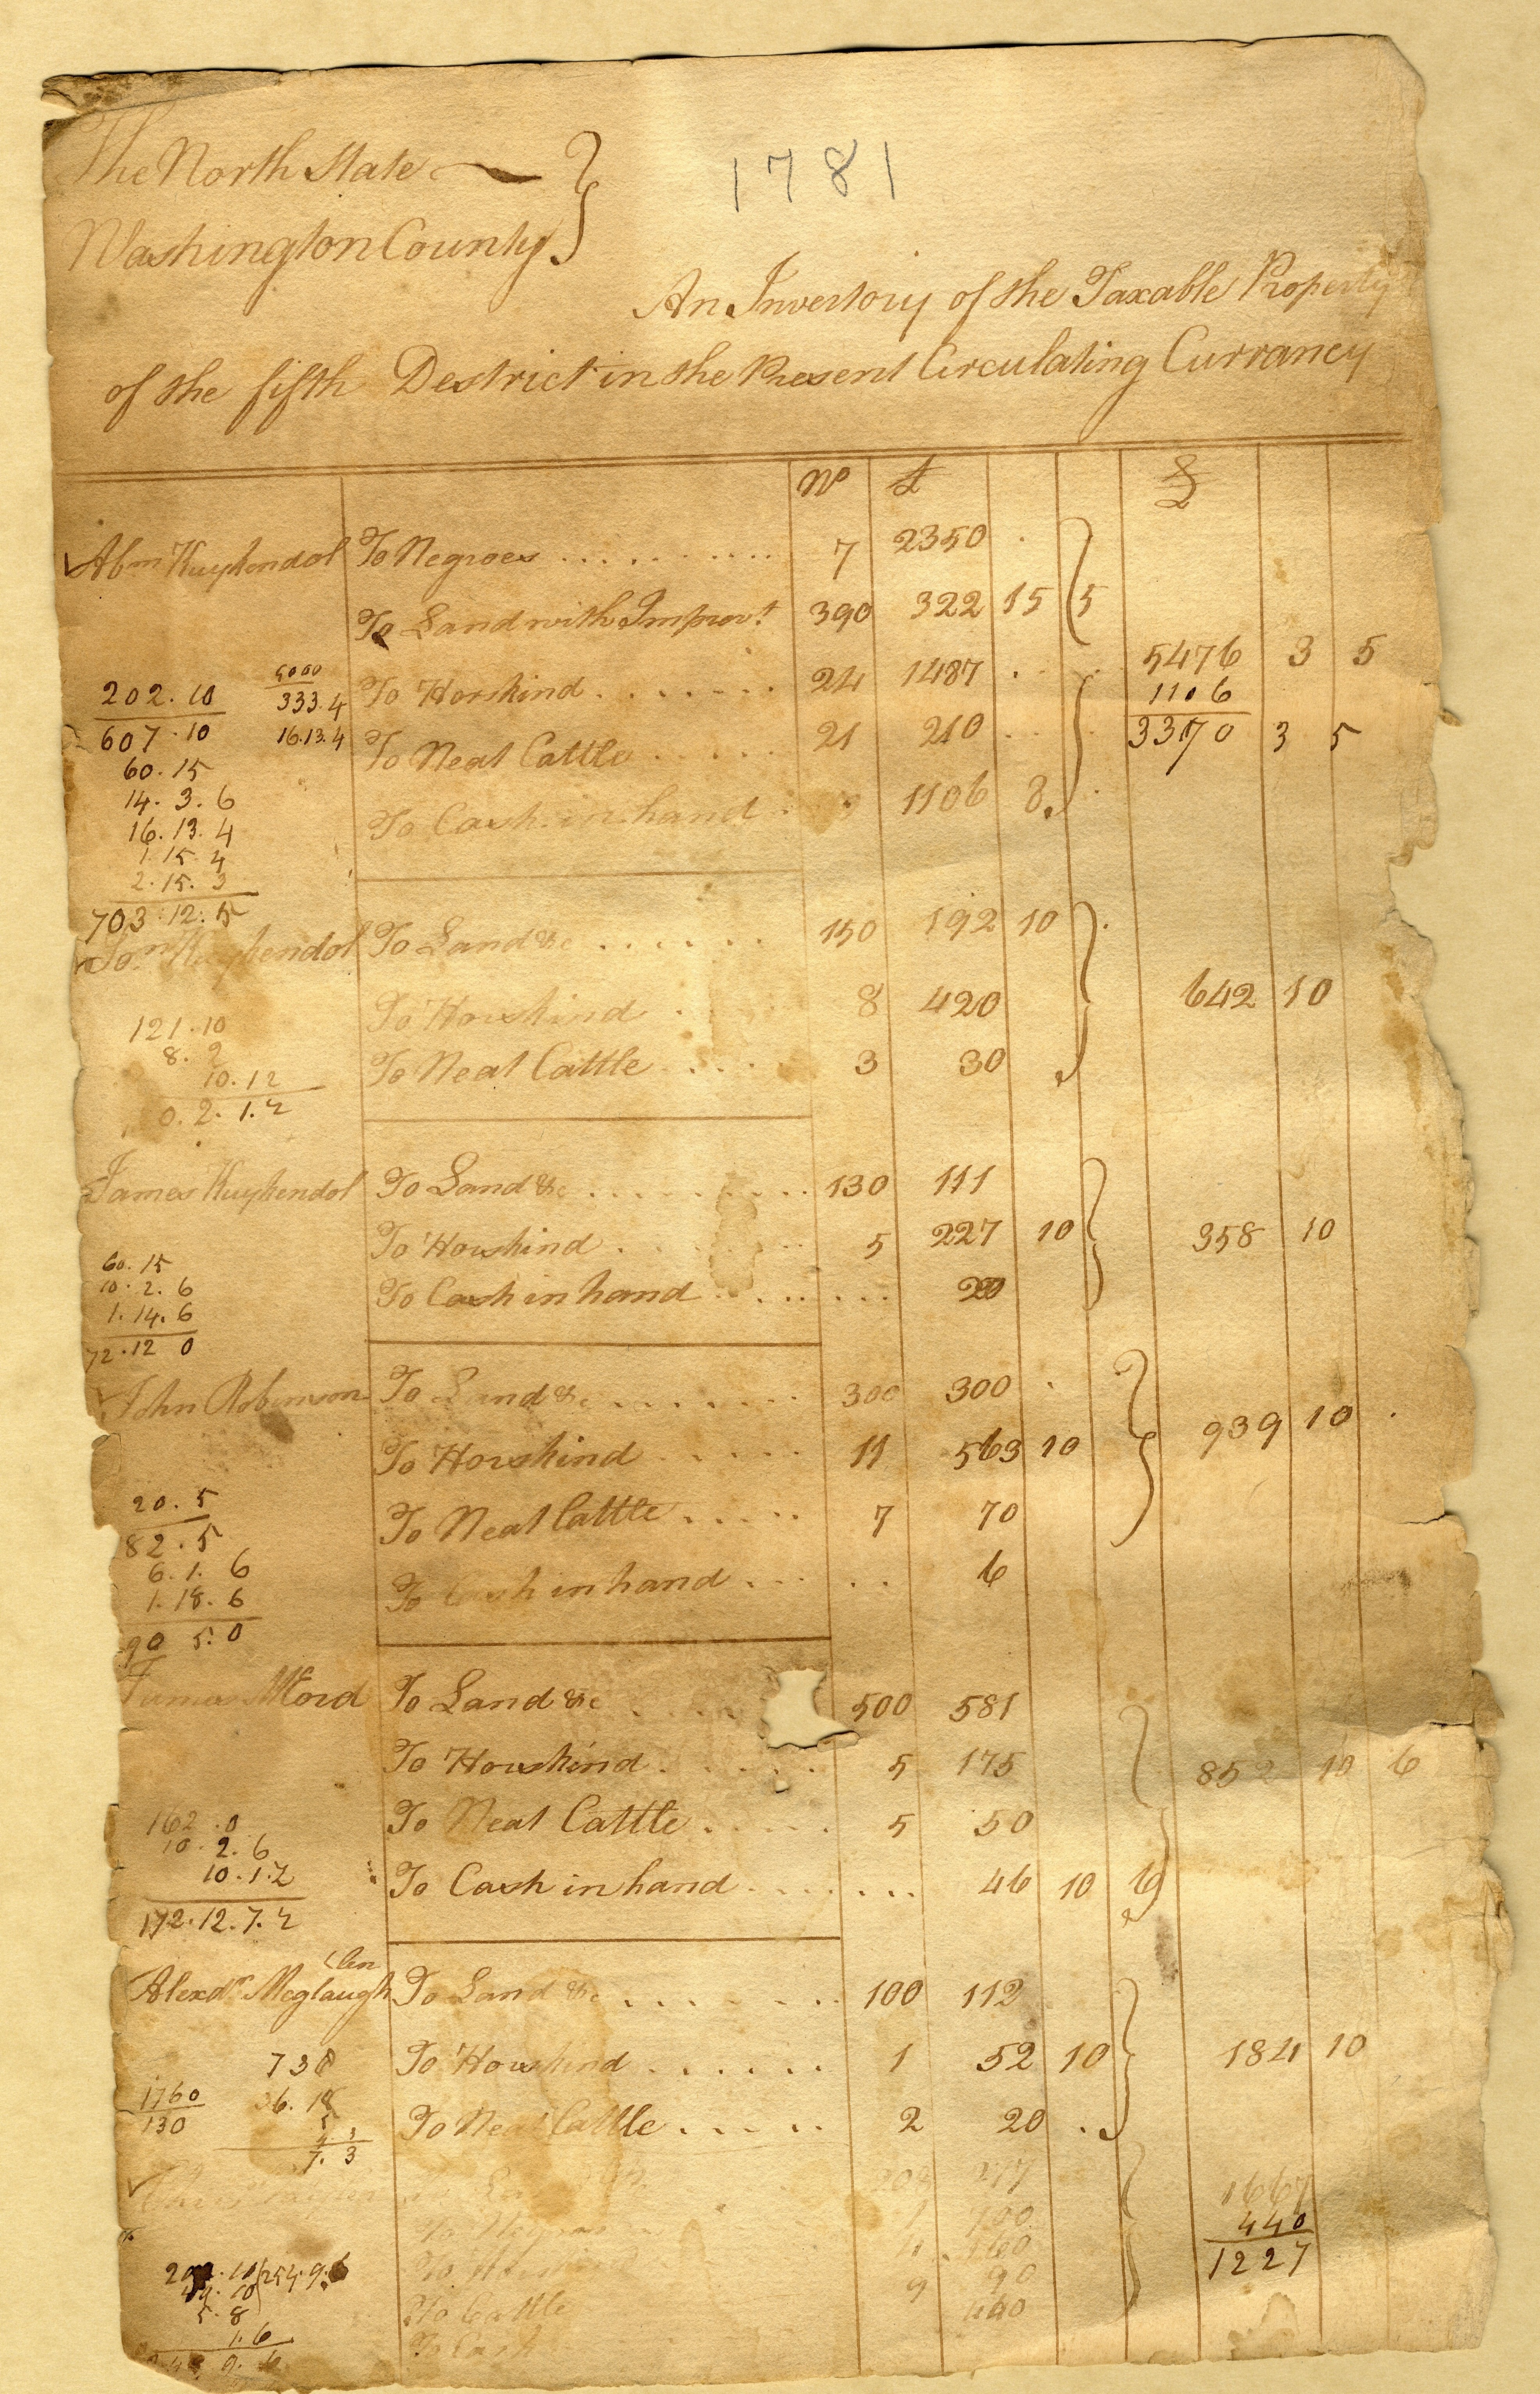 The North State
1781
Washington County
An Inventory of the Taxable Property
of the fifth Destrict in the Present Circulating Currancy
No £ £
Abm Kuykendol To Negroes 7 2350
To Land with Improvt 390 322 15 5
To Horskind 24 1487 5476 3 5
1106
To Neat Cattle 21 210 3370 3 5
To Cash in hand 1106 8
202.10 5000
333.4
607.10 16.13.4
60.15
14.3.6
16.13.4
1.15.4
2.15.3
703.12.5
Kuykendol To Land &c 150 192 10
To Horskind 8 420 642 10
To Neat Cattle 3 30
121.10
8.2
10.12
0.2.1.2
James Kuykendol To Land &c 130 111
To Horskind 5 227 10 358 10
To Cash in hand 20
60.15
10.2.6
1.14.6
72.12 0
John Robinson To Land &c 300 300
To Horskind 11 563 10 939 10
To Neat Cattle 7 70
To Cash in hand 6
20.5
82.5
6.1.6
1.18.6
90 5.0
James To Land &c 500 581
To Horskind 5 175 852 10 6
To Neat Cattle 5 50
To Cash in hand 46 10 6
162.0
10.2.6
10.1.2
172.12.7.2
Alexdr Meglaugh To Land &c 100 112
To Horskind 1 52 10 184 10
To Neat Cattle 2 20
738
1760 36.18
130 5
7.3
To Negroes 1
1667
440
1227
To Cattle 9 90
To Cash 440
254.9.6
5.8
1.6